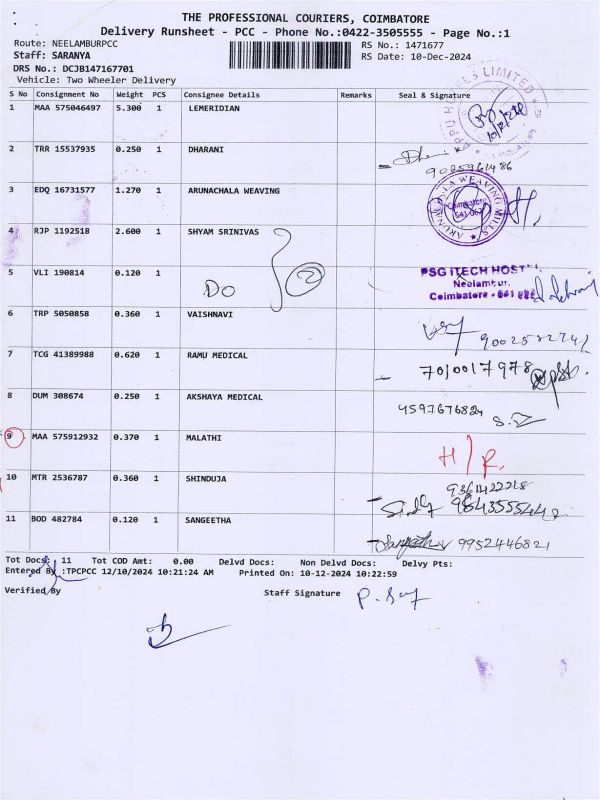 THE PROFESSIONAL COURIERS, COIMBATORE
Delivery Runsheet - PCC - Phone No.:0422-3505555 - Page No.:1
Route: NEELAMBURPCC RS No.: 1471677
Staff: SARANYA RS Date: 10-Dec-2024
DRS No.: DCJB147167701
Vehicle: Two Wheeler Delivery
S No Consignment No Weight PCS Consignee Details Remarks Seal & Signature
1 MAA 575046497 5.300 1 LEMERIDIAN
LS LIMITED
2 TRR 15537935 0.250 1 DHARANI
9025961486
3 EDQ 16731577 1.270 1 ARUNACHALA WEAVING
WEAVING MILLS
Coimbatore
4 RJP 1192518 2.600 1 SHYAM SRINIVAS
5 VLI 190814 0.120 1
DO 2
PSG ITECH HOST
Neelambur,
Coimbatore - 641
6 TRP 5050858 0.360 1 VAISHNAVI
7 TCG 41389988 0.620 1 RAMU MEDICAL
7010017978
8 DUM 308674 0.250 1 AKSHAYA MEDICAL
4597676824
9 MAA 575912932 0.370 1 MALATHI
H/R.
10 MTR 2536787 0.360 1 SHINDUJA
11 BOD 482784 0.120 1 SANGEETHA
9952446821
Tot Docs: 11 Tot COD Amt: 0.00 Delvd Docs: Non Delvd Docs: Delvy Pts:
Entered By :TPCPCC 12/10/2024 10:21:24 AM Printed On: 10-12-2024 10:22:59
Verified By Staff Signature